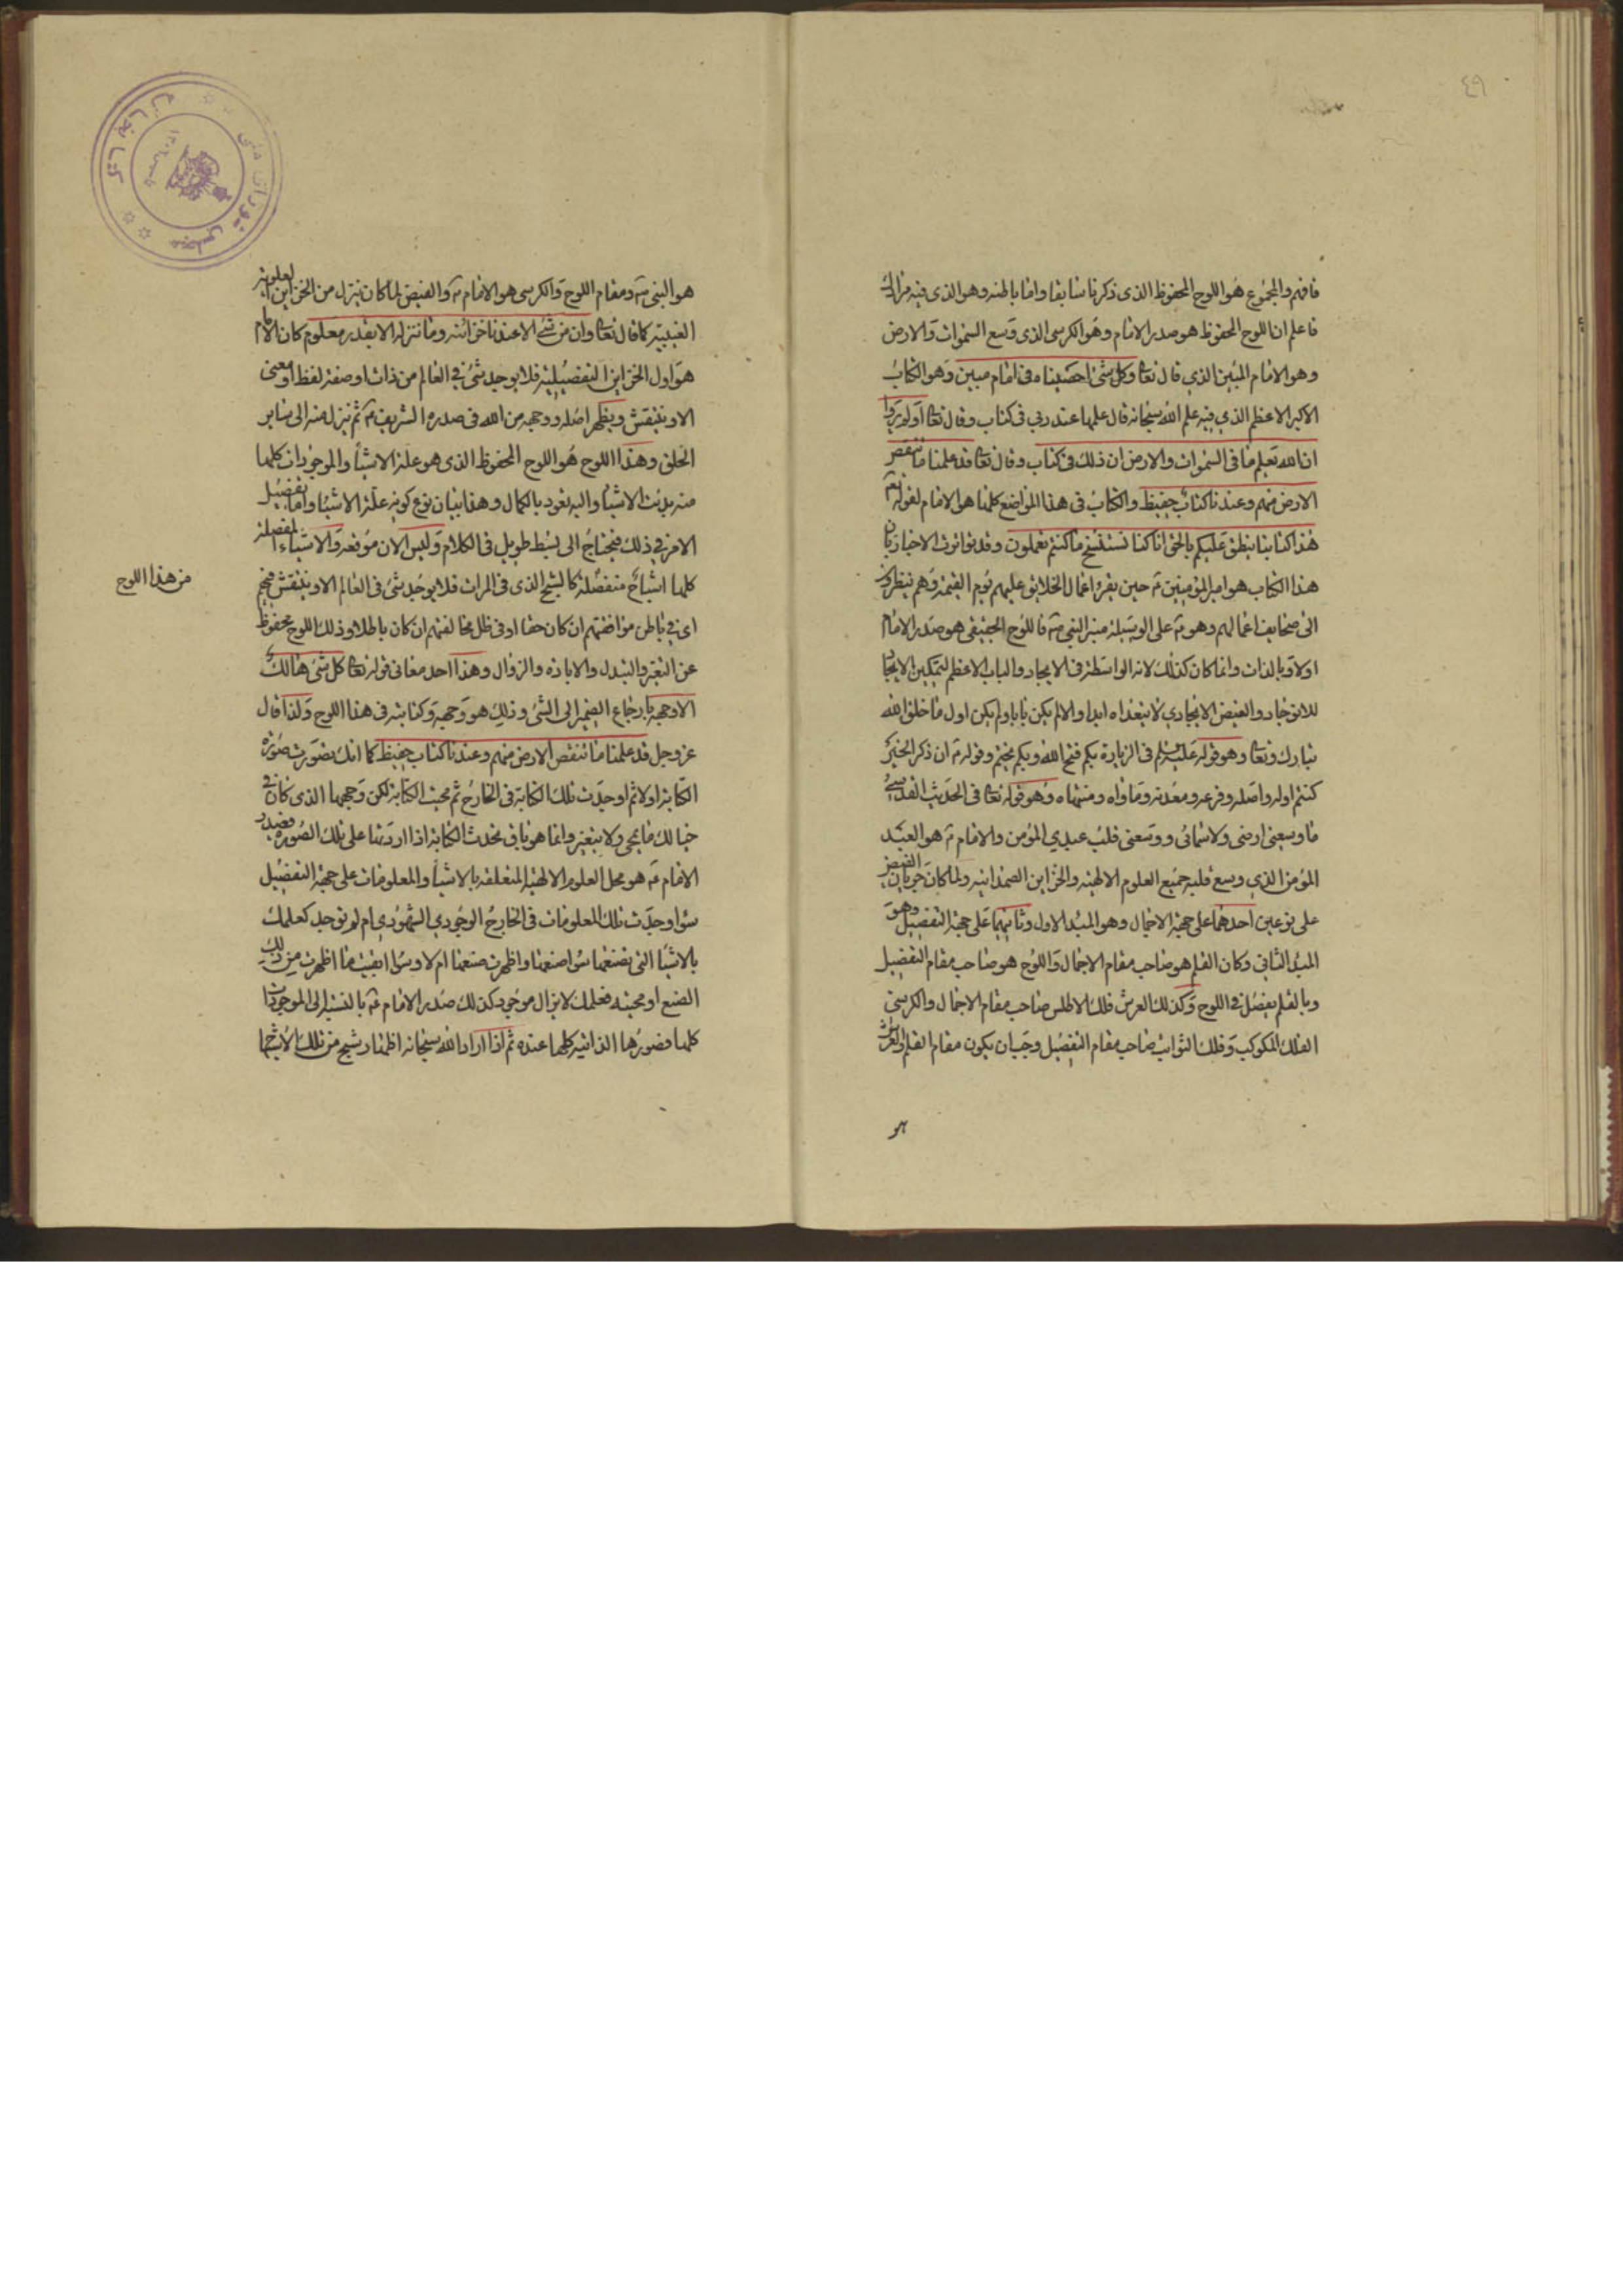 ٤٩
فافهم والمجموع هو اللوح المحفوظ الذى ذكرنا سابقا واما باطنه وهو الذى فيه
فاعلم ان اللوح المحفوظ هو صدر الامام وهو الكرسى الذى وسع السموات والارض
وهو الامام المبين الذي قال تعا وكل شئ احصيناه فى امام مبين وهو الكتاب
الاكبر الاعظم الذي فيه علم الله سبحانه قال علمها عند ربى فى كتاب وقال تعا اولم يروا
ان الله يعلم ما فى السموات والارض ان ذلك فى كتاب وقال تعا قد علمنا ما تنقص
الارض منهم وعندنا كتاب حفيظ والكتاب فى هذا المواضع كلها هو الامام لقوله تع
هذا كتابنا ينطق عليكم بالحق انا كنا نستنسخ ما كنتم تعملون وقد تواترت الاخبار بان
هذا الكتاب هو امير المؤمنين ع حين يقرء اعمال الخلائق عليهم يوم القيمة وهم ينظرون
الى صحايف اعمالهم وهو ع على الوسيلة منبر النبى ص فاللوح الحقيقى هو صدر الامام
اولا وبالذات وانما كان كذلك لانه الواسطة فى الايجاد والباب الاعظم لتمكين الايجاد
للانوجاد والفيض الايجادي لا يتعداه ابدا والا لم يكن بابا ولم يكن اول ما خلق الله
تبارك وتعا وهو قوله عليه السلم فى الزيارة بكم فتح الله وبكم يختم وقوله ع ان ذكر الخير
كنتم اوله واصله وفرعه ومعدنه وماواه ومنتهاه وهو قوله تعا فى الحديث القدسى
ما وسعنى ارضى ولا سمائى ووسعنى قلب عبدي المؤمن والامام ع هو العبد
المؤمن الذي وسع قلبه جميع العلوم الالهية والخزاين الصمدانية ولما كان جريان الفيض
على نوعين احدهما على جهة الاجمال وهو المبدء الاول وثانيهما على جهة التفصيل وهو
المبدء الثانى وكان القلم هو صاحب مقام الاجمال واللوح هو صاحب مقام التفصيل
وبالقلم يفصل فى اللوح وكذلك العرش فلك الاطلس صاحب مقام الاجمال والكرسى
الفلك المكوكب وفلك الثوابت صاحب مقام التفصيل وجب ان يكون مقام القلم والعرش
هو
هو النبى ص ومقام اللوح والكرسى هو الامام ع والفيض لما كان ينزل من الخزاين العلوية
الغيبية كما قال تعا وان من شئ الا عندنا خزائنه وما ننزله الا بقدر معلوم كان الامام
هو اول الخزاين التفصيلية فلا يوجد شئ فى العالم من ذات او صفة لفظ او معنى
الا وينتقش ويظهر اصله ووجهه من الله فى صدره الشريف ع ثم ينزل منه الى ساير
الخلق وهذا اللوح هو اللوح المحفوظ الذى هو علة الاشياء والموجودات كلها
منه بدئت الاشياء واليه تعود بالكمال وهذا بيان نوع كونه علة الاشياء واما تفصيل
الامر فى ذلك فيحتاج الى بسط طويل فى الكلام وليس الان موقعه والاشياء المفصلة
من هذا اللوح
كلها اشباح منفصلة كالشبح الذى فى المرات فلا يوجد شئ فى العالم الا وينتقش
اى فى باطن موافقتهم ان كان حقا او فى ظل مخالفتهم ان كان باطلا وذلك اللوح محفوظ
عن التغير والتبدل والابادة والزوال وهذا احد معانى قوله تعا كل شئ هالك
الا وجهه بارجاع الضمير الى الشئ وذلك هو وجهه وكتابته فى هذا اللوح ولذا قال
عز وجل قد علمنا ما تنقص الارض منهم وعندنا كتاب حفيظ كما انك تصورت صورة
الكتابة اولا ثم اوجدت تلك الكتابة فى الخارج ثم محيت الكتابة لكن وجهها الذى كان فى
خيالك ما يمحى ولا يتغير وانما هو باق تحدث الكتابة اذا اردتها على تلك الصورة
الامام ع هو محل العلوم الالهية المتعلقة بالاشياء والمعلومات على جهة التفصيل
سواء وجدت تلك المعلومات فى الخارج الوجودي الشهودي ام لم توجد كعلمك
بالاشياء التى تصنعها سواء صنعتها واظهرت صنعها ام لا وسواء ابقيت ما اظهرت من ذلك
الصنع او محيته فعلمك لا يزال موجود كذلك صدر الامام ع بالنسبة الى الموجودات
كلها فصورها الذاتية كلها عنده ثم اذا اراد الله سبحانه اظهار شبح من تلك الاشباح